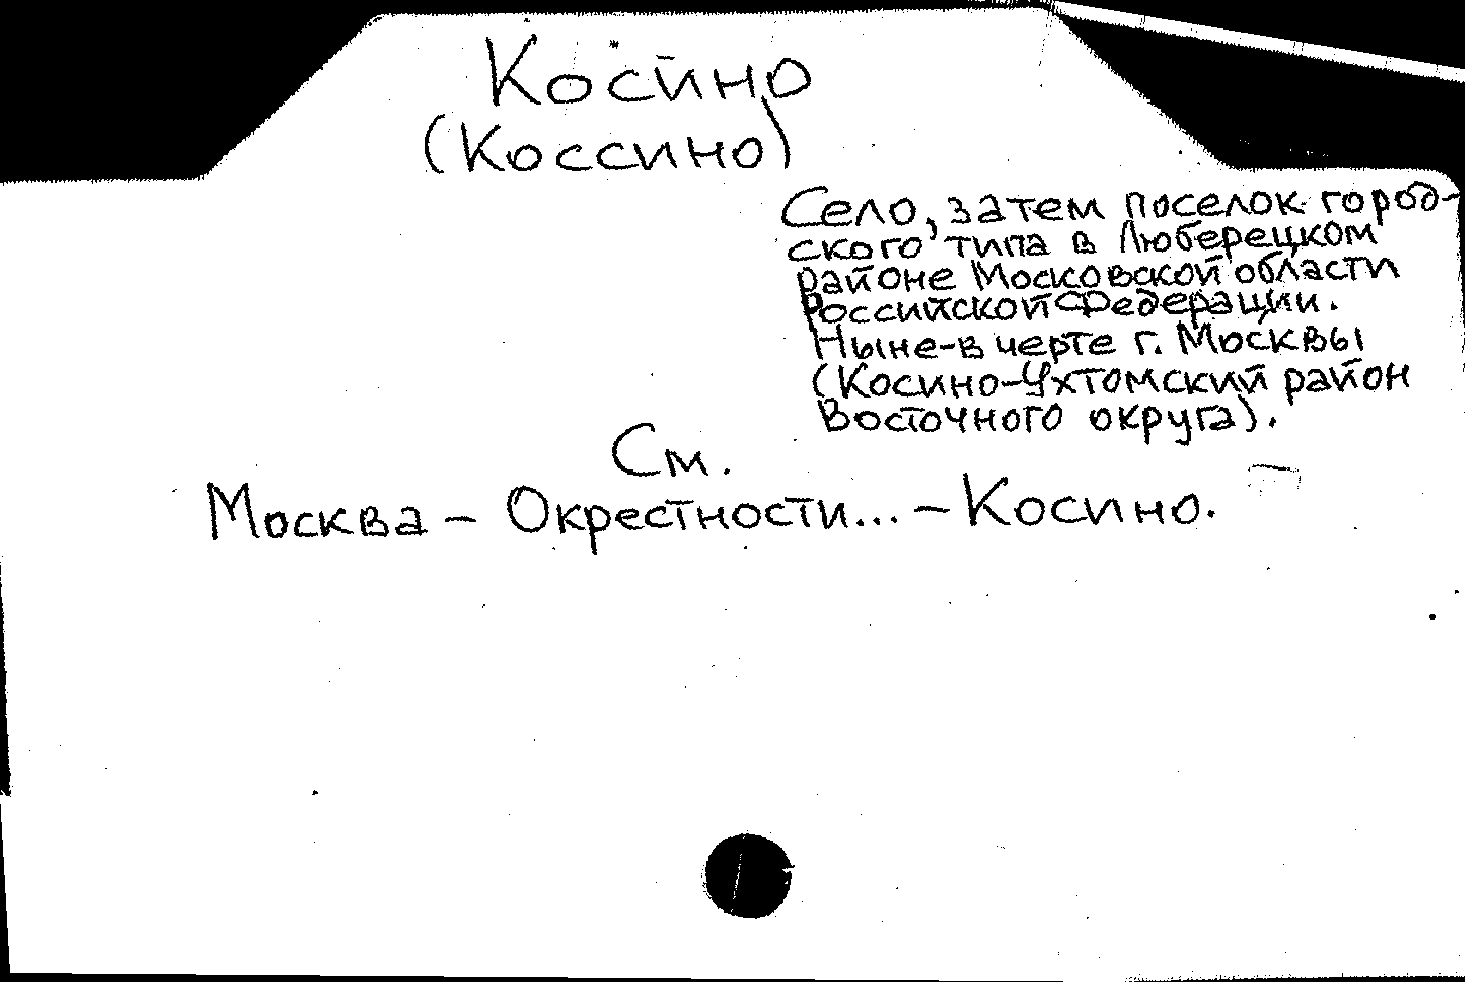 Косино
(Коссино)
Село, затем поселок город-
ского типа в Люберецком
районе Московской области
Российской Федерации.
Ныне-в черте г. Москвы
(Косино-Ухтомский район
Восточного округа).
См.
Москва - Окрестности... - Косино.